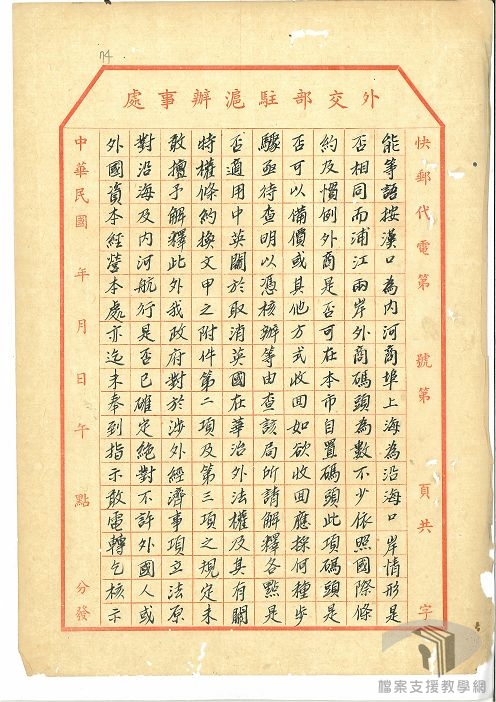 74
外交部駐滬辦事處
快郵代電第　號第　頁共　字
能等語按漢口為内河商埠上海為沿海口岸情形是
否相同而浦江兩岸外商碼頭為數不少依照國際條
約及慣例外商是否可在本市自置碼頭此項碼頭是
否可以備價或其他方式收回如欲收回應採何種步
驟亟待查明以憑核辦等由查該局所請解釋各點是
否適用中英關於取消英國在華治外法權及其有關
特權條約換文甲之附件第二項及第三項之規定未
敢擅予解釋此外我政府對於涉外經濟事項立法原
對沿海及内河航行是否已確定絕對不許外國人或
外國資本經營本處亦迄未奉到指示敢電轉乞核示
中華民國　年　月　日　午　點　分發
檔案支援教學網